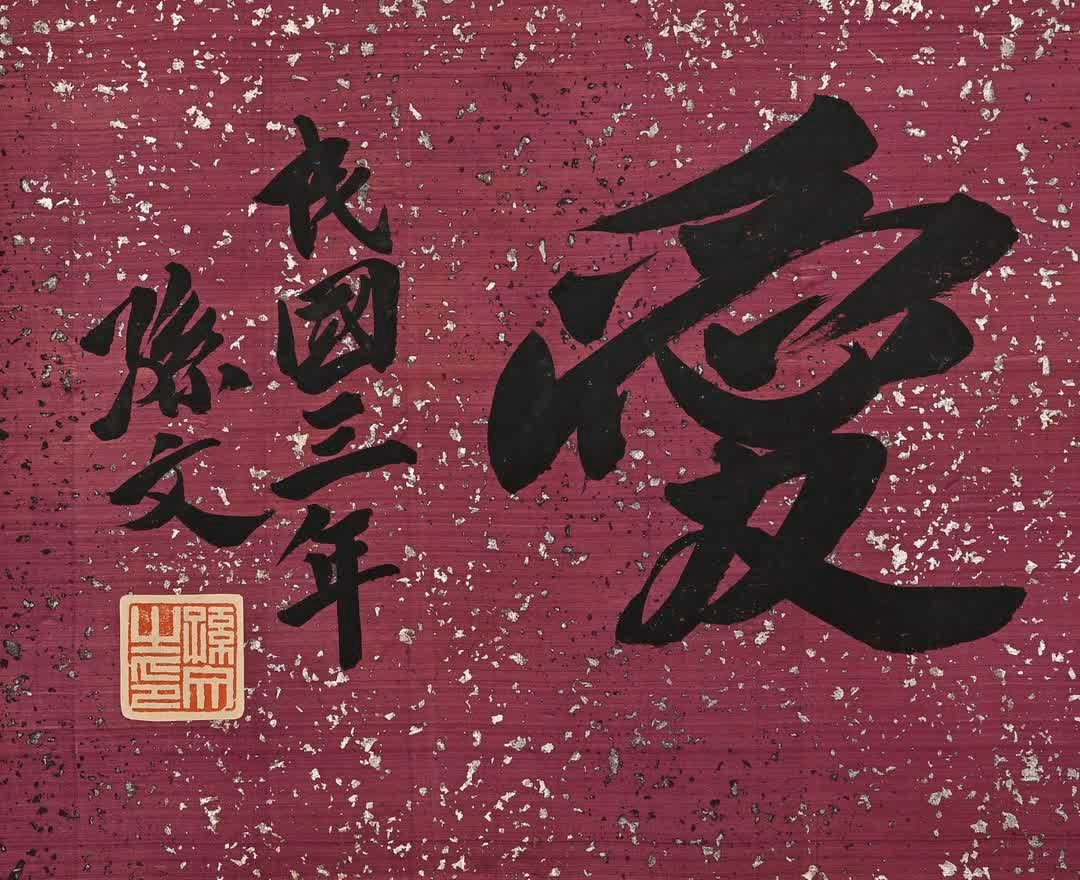 愛
民國三年
孫文
孫文之印